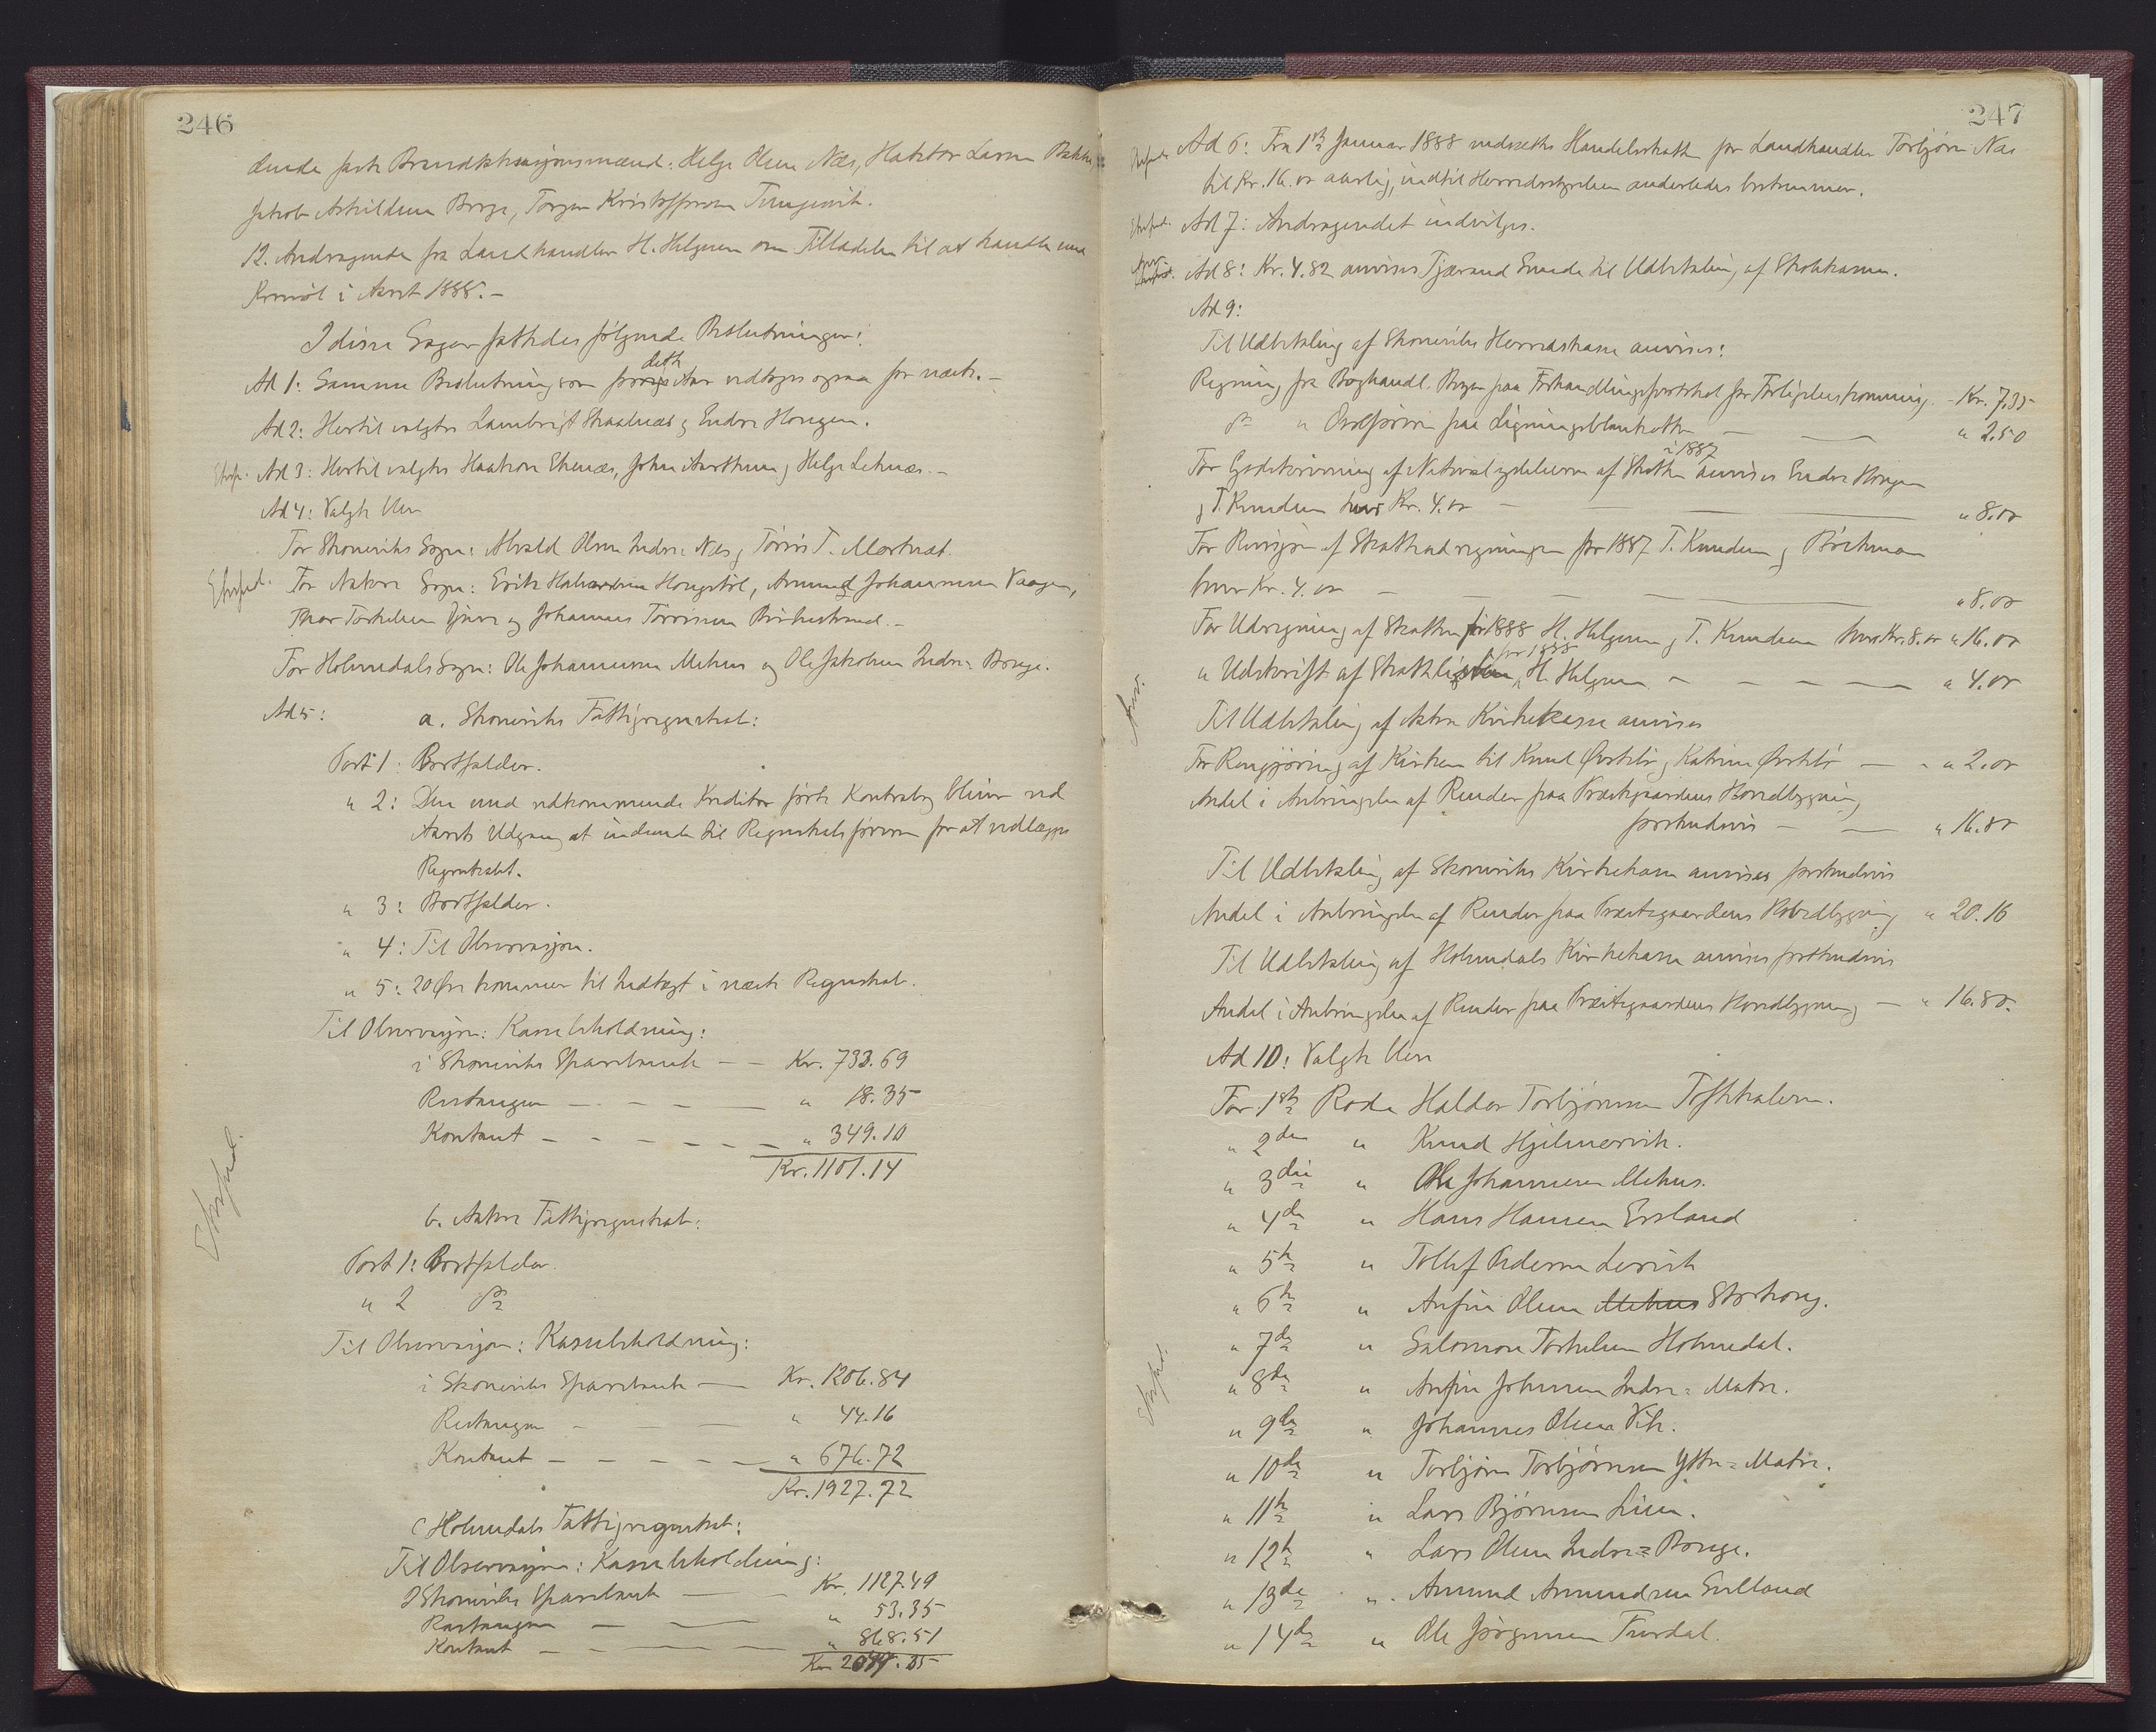 246
dende faste Brandtaksasjonsmænd: Helge Olsen Næs, Haktor Larsen Bakke,
Jakob Askildsen Borge, Torger Kristoffersen Tungesvik.
12. Andragende fra Landhandler H. Helgesen om Tilladelse til at handle med
Kruttöl i Aaret 1888.–
I disse Sager fattedes følgende Beslutninger:
Ad 1: Samme Beslutning som forrige dette Aar vedtages ogsaa for næste.–
Ad 2: Hertil valgtes Lambrigt Skaalnæs og Endre Hougen.
Exsp. Ad 3: Hertil valgtes Haakon Ekenæs, John Aarthun, Helge Leknæs.–
Ad 4: Valgte blev
For Skoneviks Sogn: Alvald Olsen Indre-Næs og Tørris T. Mærkvæt.
Exsped. For Aakre Sogn: Erik Halvorsen Hougstøl, Amund Johannessen Vaagen,
Thor Torkelsen Fjære og Johannes Tørrissen Birkestrand.–
For Holmedals Sogn: Ole Johannessen Mehus og Ole Jakobsen Indre-Borge.
Ad 5: a. Skoneviks Fattigregnskab:
Post 1: Bortfalder.
" 2: Den med vedkommende Kreditor førte Kontrabog bliver ved
Aarets Udgang at indsende til Regnskabsføreren for at vedlægges
Regnskabet.
" 3: Bortfalder.
" 4: Til Observasjon.
" 5: 20 Øre kommer til Indtægt i næste Regnskab.
Til Observasjon: Kassebeholdning:
i Skoneviks Sparebank – – Kr. 733.69
Restangen – – – – " 18.35
Kontant – – – – – " 349.10
Kr. 1101.14
Exsped.
b. Aakre Fattigregnskab:
Post 1: Bortfalder.
" 2 do
Til Observasjon: Kassebeholdning:
i Skoneviks Sparebank – Kr. 1206.84
Restangen – – – " 44.16
Kontant – – – – – " 676.72
Kr. 1927.72
C Holmedals Fattigregnskab:
Til Observasjon: Kassebeholdning:
I Skoneviks Sparebank – – Kr. 1127.49
Restangen – – " 53.35
Kontant – – – " 868.51
Kr. 2049.35
247
Exsped. Ad 6: Fra 1ste Januar 1888 nedsættes Handelsskatten for Landhandler Torbjørn Næs
til Kr. 16.00 aarlig, indtil Herredsstyrelsen anderledes bestemmer.
Exsped. Ad 7: Andragendet indvilges.
Anv. Exsped. Ad 8: Kr. 4.82 anvises Tjærand Sunde til Udbetaling af Skolekassen.
Ad 9:
Til Udbetaling af Skoneviks Herredskasse anvises:
Regning fra Boghandl. Beyer paa Forhandlingsprotokol for Forligelseskommission – Kr. 7.35
do " Ordføreren paa Ligningsblanketter – – " 2.50
For Godskrivning af Naturalydelserne af Skatten i 1887 anvises Endre Hougen
og T. Knudsen hver Kr. 4.00 – – – " 8.00
For Revisjon af Skatteudregningen for 1887 T. Knudsen og Böckman
hver Kr. 4.00 – – – – " 8.00
For Udregning af Skatten for 1888 H. Helgesen og T. Knudsen hver Kr. 8.00 " 16.00
" Udskrift af Skattelisten for 1888 H. Helgesen – – – – " 4.00
Anv.
Til Udbetaling af Aakre Kirkekasse anvises
For Rengjøring af Kirken til Knud Øvstebø, Katrine Øvstebø – " 2.00
Andel i Anbringelse af Render paa Præstgaardens Hovedbygning
forskudsvis – – " 16.80
Til Udbetaling af Skoneviks Kirkekasse anvises forskudsvis
Andel i Anbringelse af Render paa Præstegaardens Hovedbygning " 20.16
Til Udbetaling af Holmedals Kirkekasse anvises forskudsvis
Andel i Anbringelse af Render paa Præstegaardens Hovedbygning – " 16.80.
Ad 10: Valgte blev
For 1ste Rode Haldor Torbjørnsen Toftekalven.
" 2den " Knud Hjelmervik.
" 3die " Ole Johannesen Mehus.
" 4de " Hans Hansen Ersland
" 5te " Tollef Pedersen Lervik
" 6te " Anfin Olsen Mehus Storhoug.
" 7de " Salomon Torkelsen Holmedal.
Exsped.
" 8de " Anfin Johnsen Indre-Matre.
" 9de " Johannes Olsen Vik.
" 10de " Torbjørn Torbjørnsen Yttre-Matre.
" 11te " Lars Bjørnsen Lien.
" 12te " Lars Olsen Indre-Borge.
" 13de " Amund Amundsen Gulland
" 14de " Ole Jørgensen Furdal.